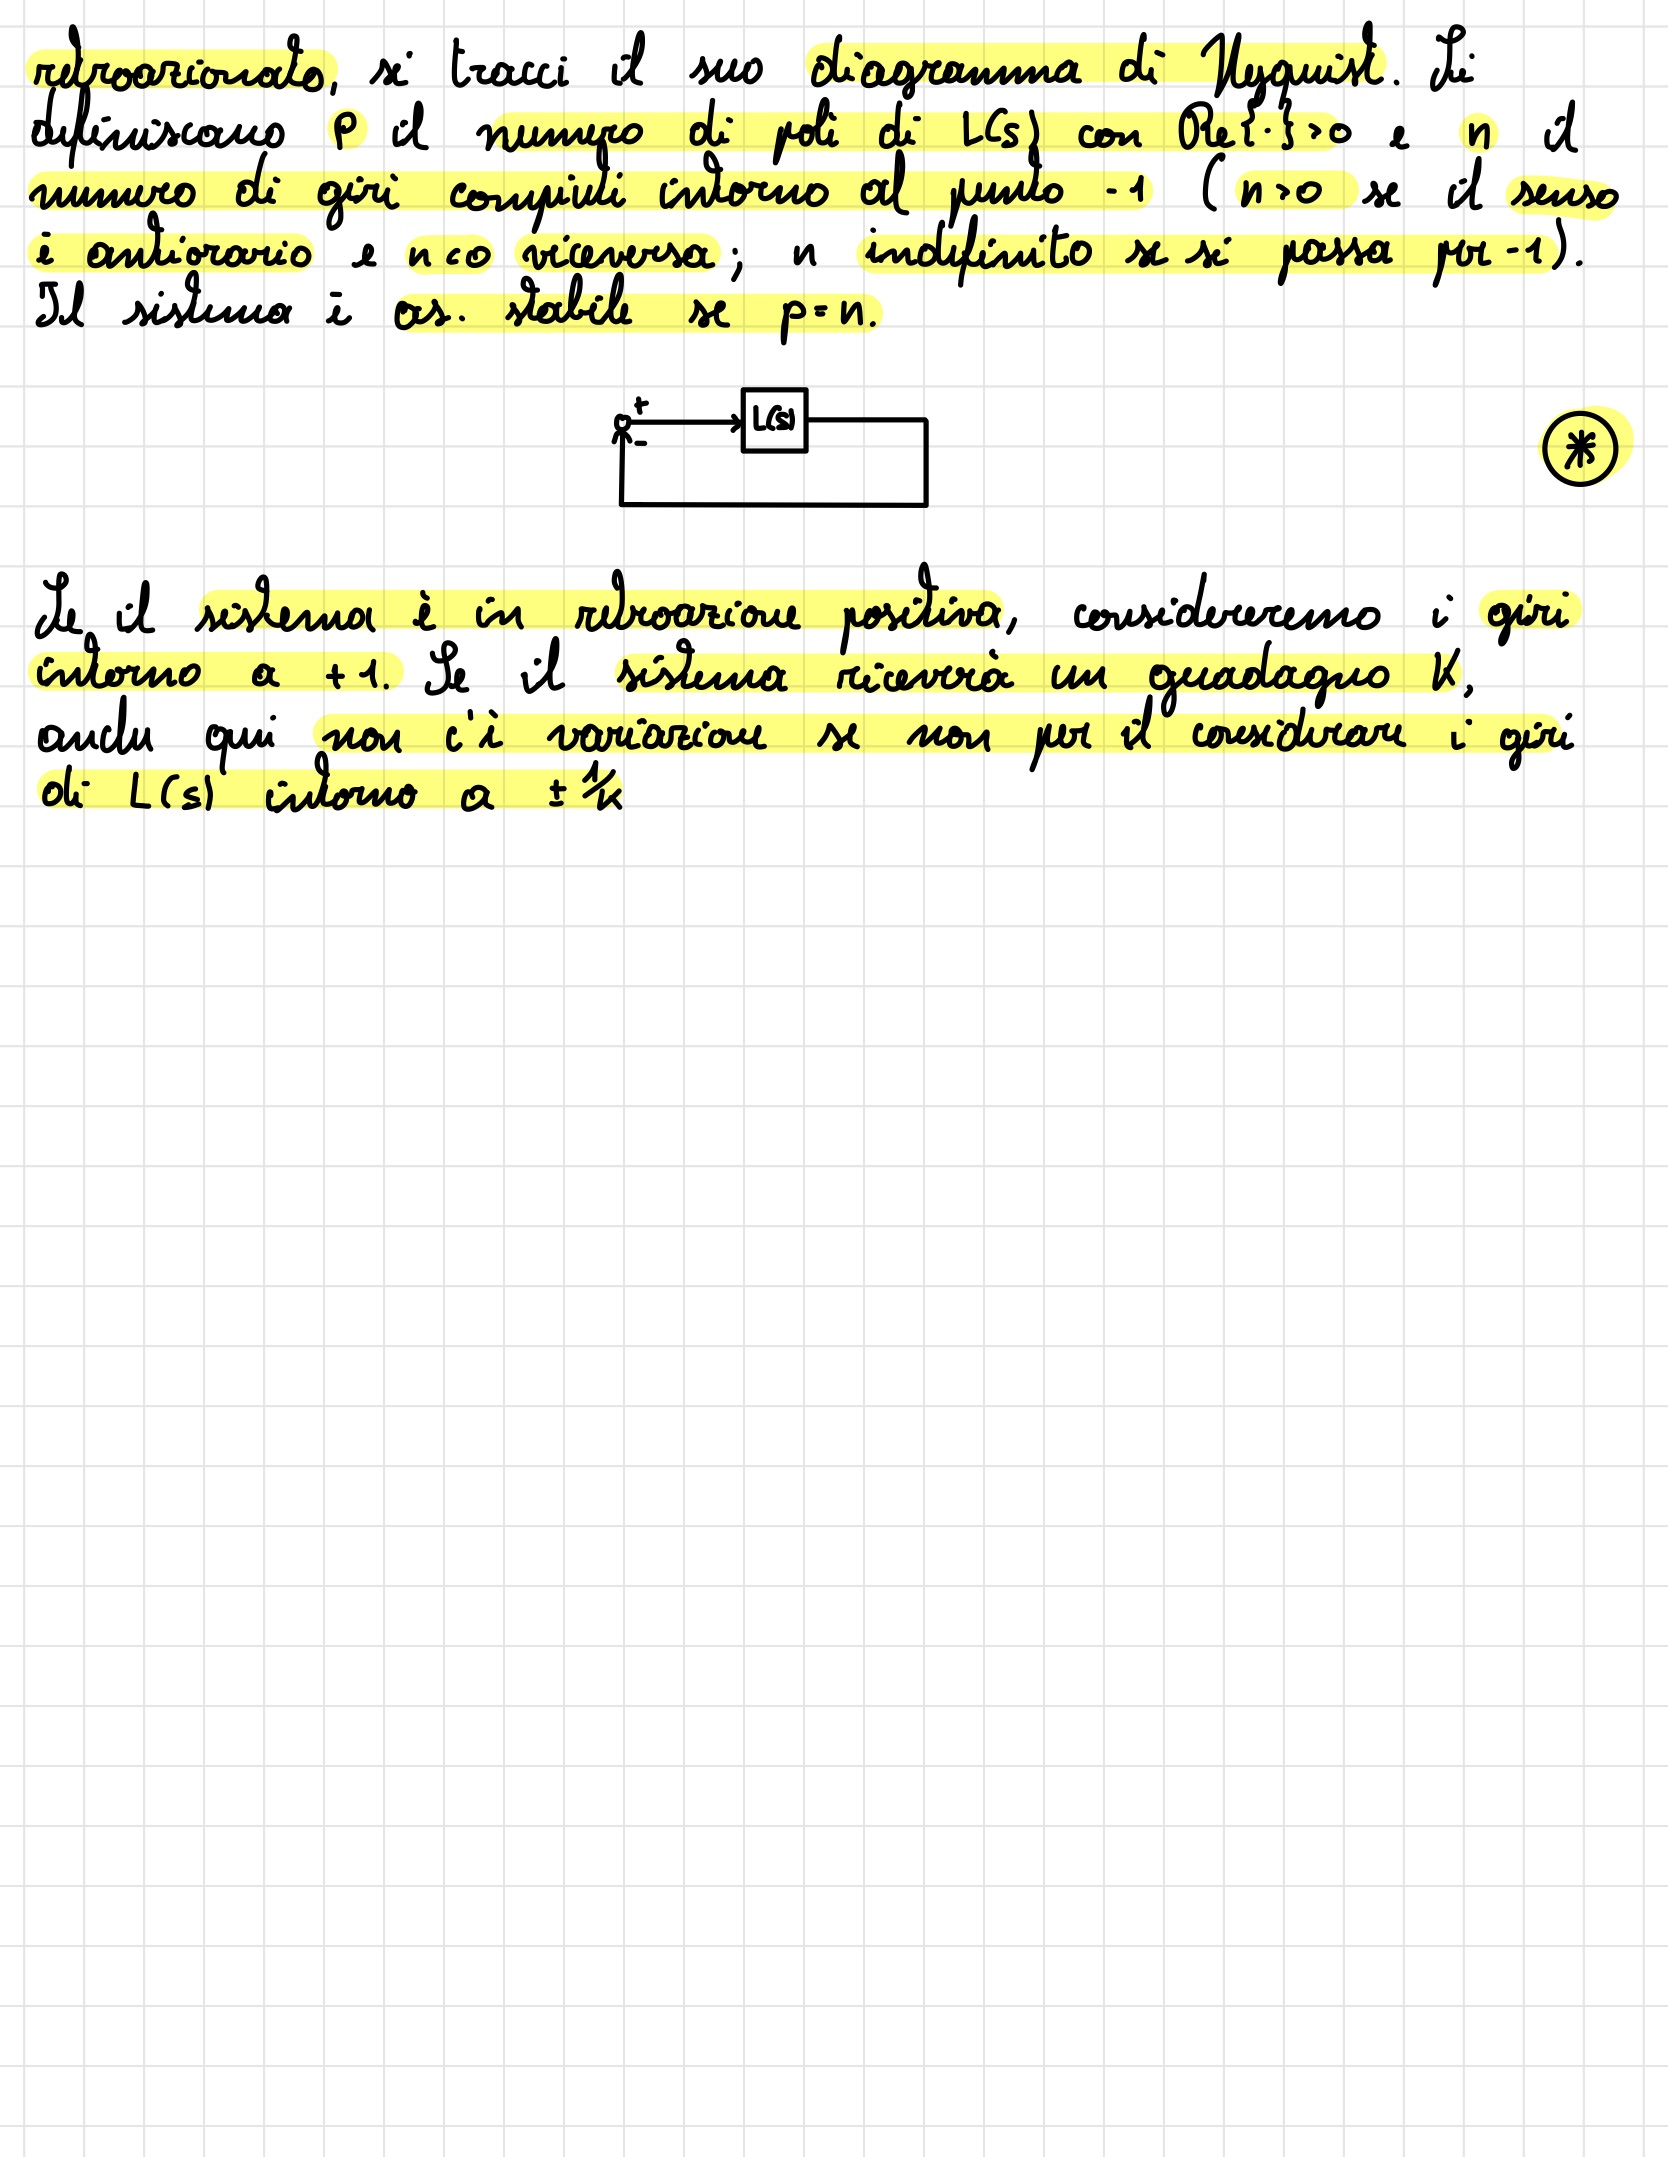 retroazionato, si tracci il suo diagramma di Nyquist. Si
definiscano P il numero di poli di L(s) con Re{·}>0 e n il
numero di giri compiuti intorno al punto -1 (n>0 se il senso
è antiorario e n<0 viceversa; n indefinito se si passa per -1).
Il sistema è as. stabile se p=n.
+
L(s)
-
*
Se il sistema è in retroazione positiva, considereremo i giri
intorno a +1. Se il sistema riceverà un guadagno K,
anche qui non c'è variazione se non per il considerare i giri
di L(s) intorno a ± 1/k